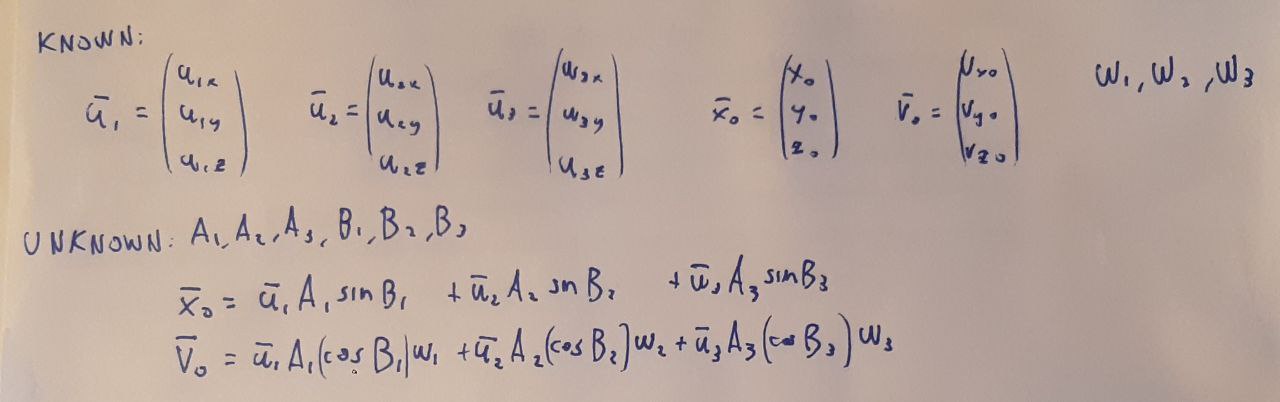 KNOWN:
ū₁ = (u₁ₓ u₁y u₁z) ū₂ = (u₂ₓ u₂y u₂z) ū₃ = (u₃ₓ u₃y u₃z) x̄₀ = (x₀ y₀ z₀) v̄₀ = (vx₀ vy₀ vz₀) w₁, w₂, w₃
UNKNOWN: A₁, A₂, A₃, B₁, B₂, B₃
x̄₀ = ū₁ A₁ sin B₁ + ū₂ A₂ sin B₂ + ū₃ A₃ sin B₃
V̄₀ = ū₁ A₁ (cos B₁) w₁ + ū₂ A₂ (cos B₂) w₂ + ū₃ A₃ (cos B₃) w₃